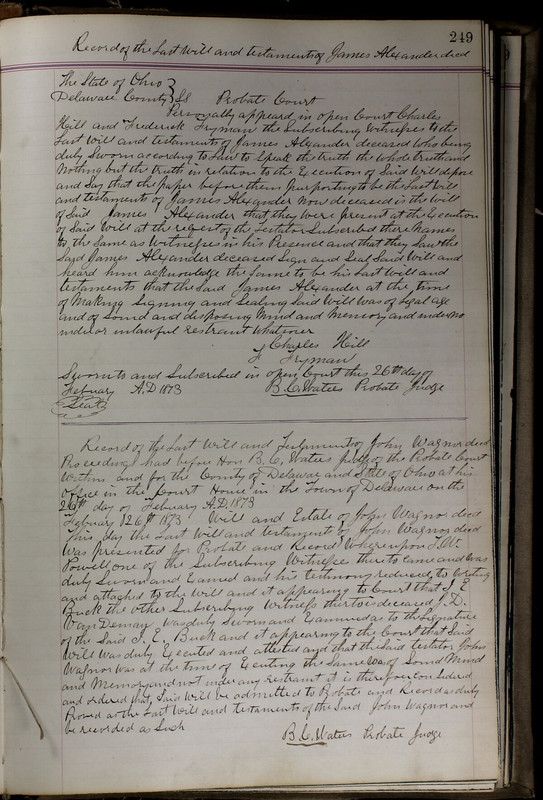 249
Record of the Last Will and testaments of James Alexander decd
The State of Ohio }
Delaware County } SS Probate Court
Personally appeared in open Court Charles
Hill and Frederick Fryman the Subscribing Witnesses to the
Last Will and testaments of James Alexander deceased who being
duly Sworn according to Law to Speak the truth the whole truth and
Nothing but the truth in relation to the Execution of Said Will depose
and Say that the paper before them purporting to be the Last Will
and testaments of James Alexander now deceased is the will
of Said James Alexander that they were present at the Execution
of Said Will at the request of the Testator Subscribed there Names
to the Same as Witnesses in his Presence and that they Saw the
Said James Alexander deceased Sign and Seal Said Will and
heard him acknowledge the Same to be his Last Will and
testaments that the Said James Alexander at the time
of Making Signing and Sealing Said Will was of Legal age
and of Sound and disposing Mind and Memory and under no
undue or unlawful restraint Whatsoever
Charles Hill
F Fryman
Sworn to and Subscribed in open Court this 26th day of
Februry A.D 1873 B. C. Waters Probate Judge
Seal
Record of the Last Will and Testament of John Wagnor decd
Proceedings had before Hon B. C. Waters Judge of the Probate Court
Within and for the County of Delaware and State of Ohio at his
office in the Court House in the Town of Delaware on the
26th day of Februry A.D. 1873
Februry 26th 1873 Will and Estate of John Wagnor decd
This day the Last Will and testament of John Wagnor decd
Was presented for Probate and Record Whereupon T. W.
Powell one of the Subscribing Witnesses thereto came and was
duly Sworn and Examined and his testimony reduced to Writing
and attached to the Will and it appearing to Court that J. E.
Buck the other Subscribing Witness thereto is deceased J. D.
Van Deman was duly Sworn and Examined as to the Signature
of the Said J. E. Buck and it appearing to the Court that Said
Will was duly Executed and attested and that the Said testator John
Wagnor was at the time of Executing the Same was of Sound Mind
and Memory and not under any restraint it is therefore considered
and ordered that Said Will be admitted to Probate and Record as duly
Proved as the Last Will and testaments of the Said John Wagnor and
be recorded as Such
B. C. Waters Probate Judge